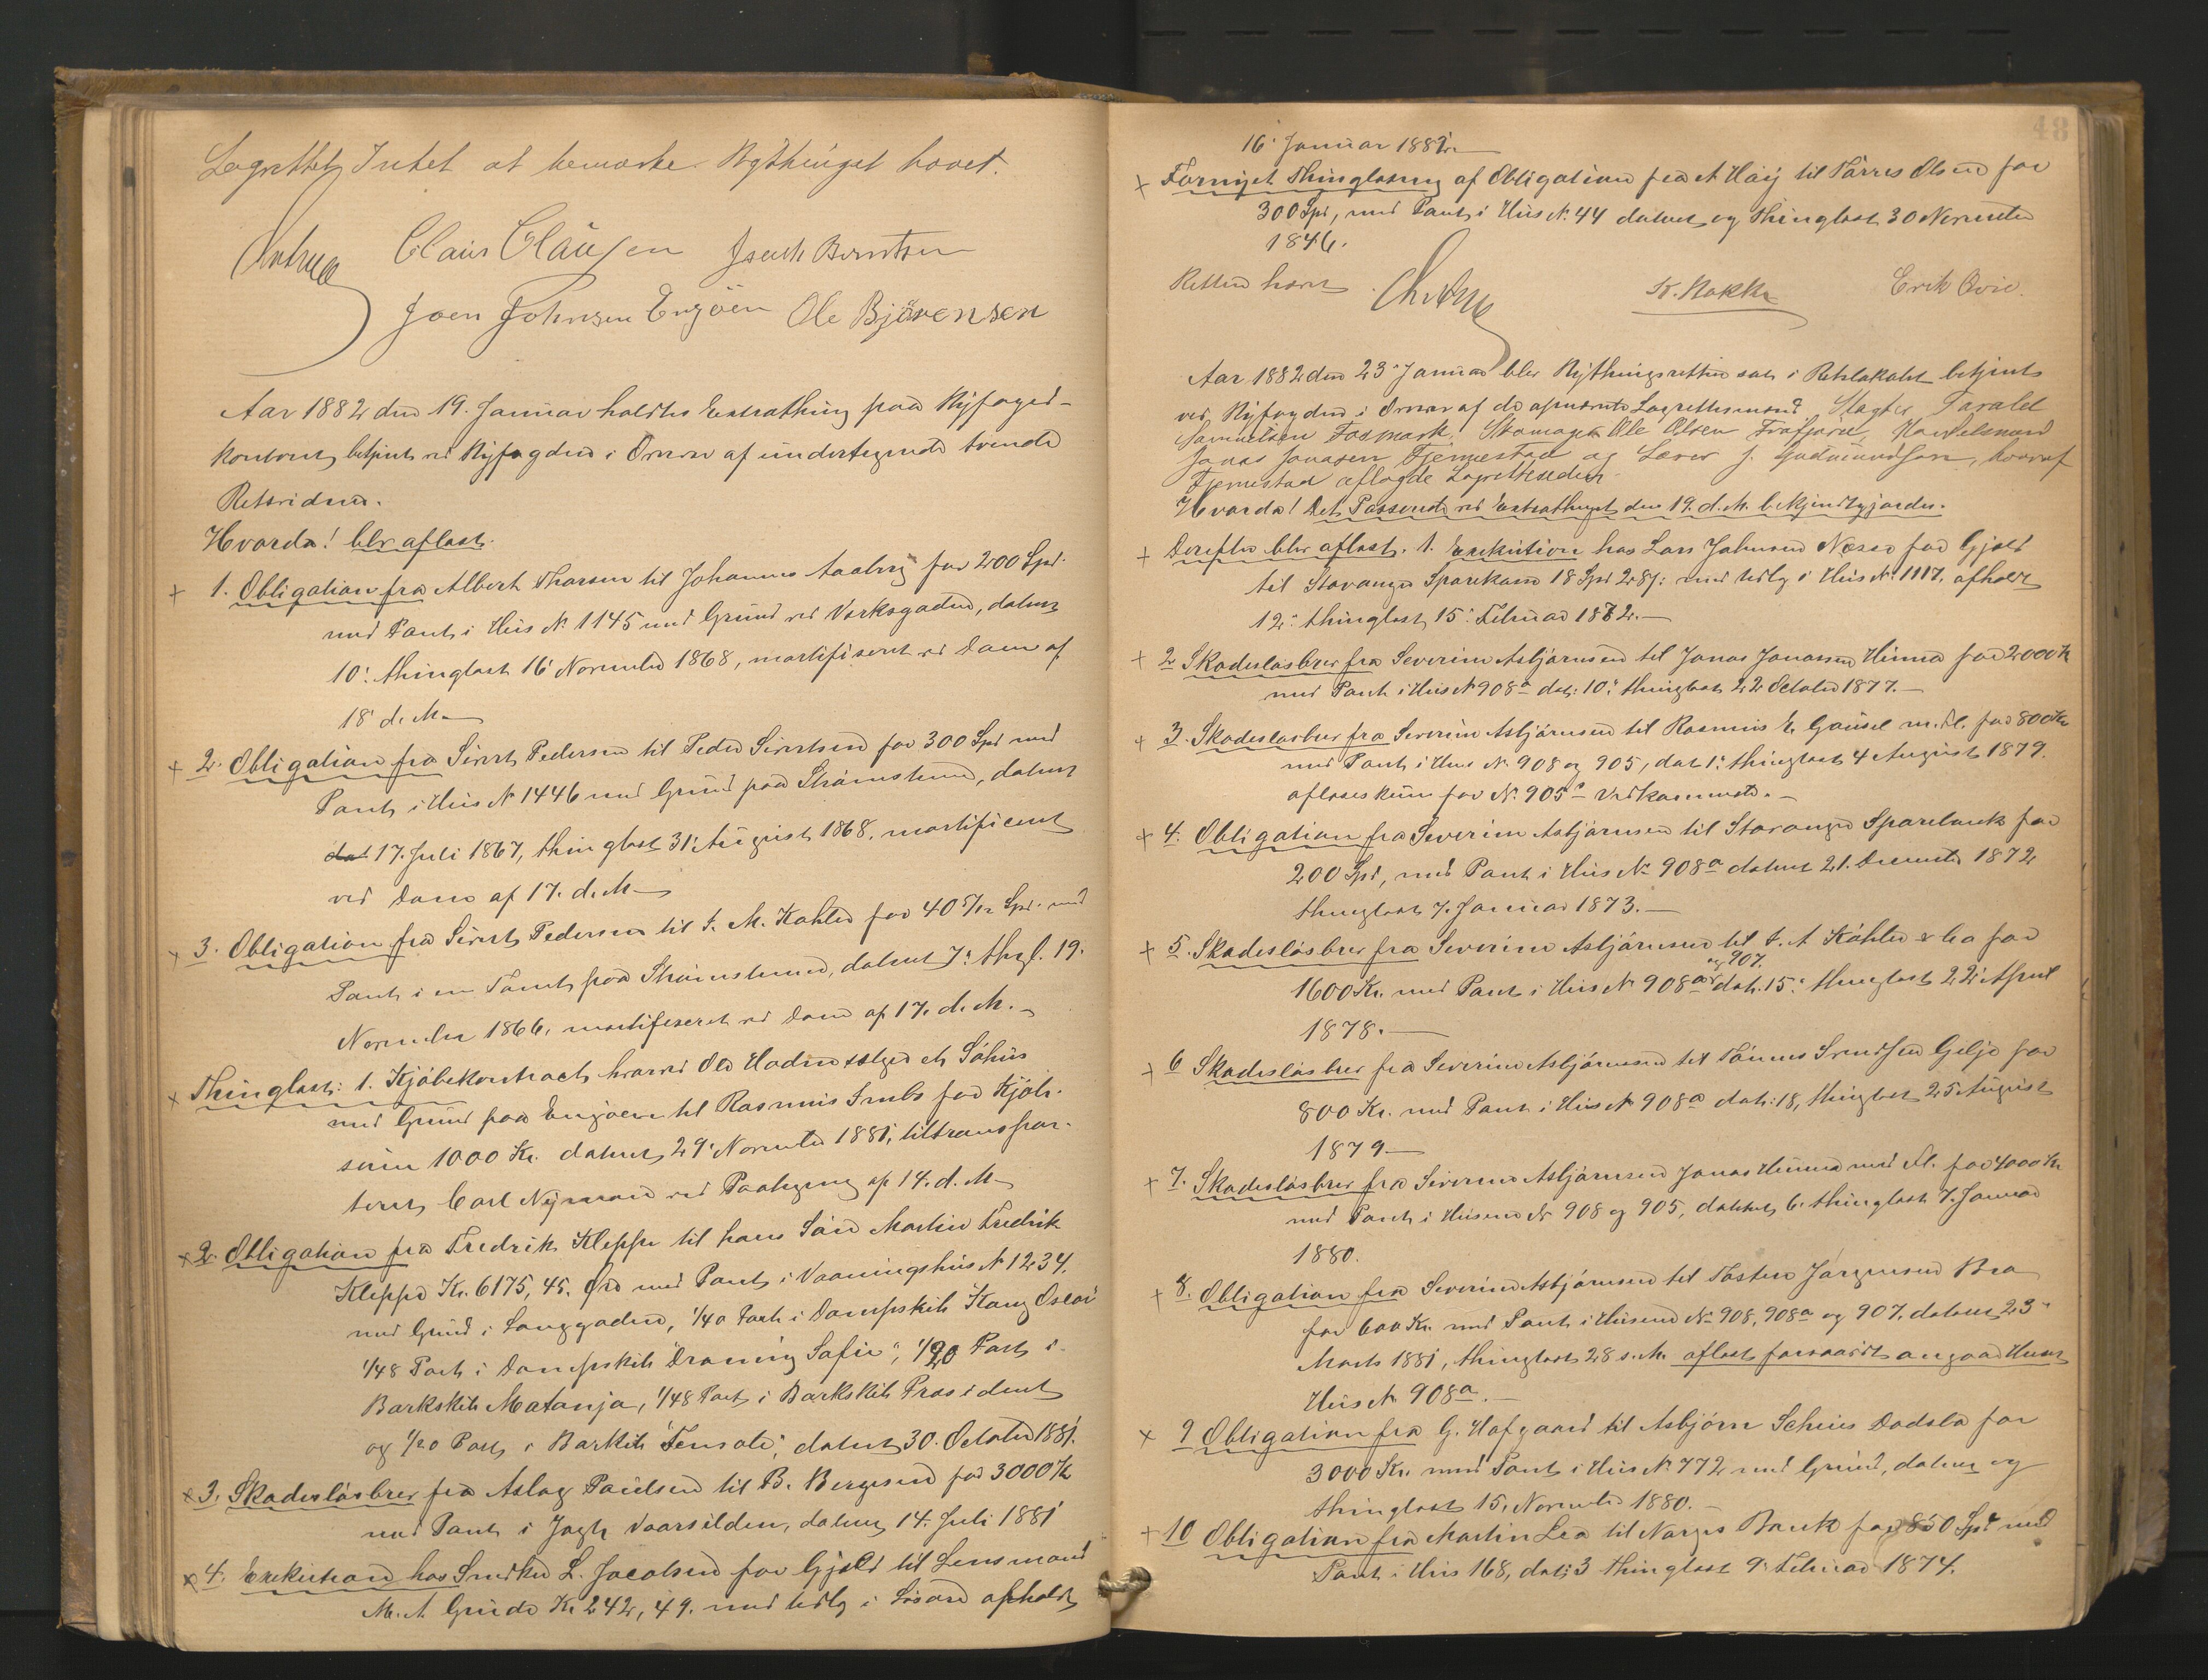 Lagrettet Intet at bemærke. Bythinget hævet.
Claus Clausen Joen Johnsen Engøen Ole Björensen
Aar 1882 den 19. Januar holdtes Extrathing paa Byfoged-
kontoret, betjent ved Byfogden i Orner af undertegnede tvende
Retsvidner.
Hvorda! blev aflæst.
1. Obligation fra Albert Thorsen til Johannes Aaby for 200 Spd.
med Pant i Hus No 1145 med Grund ved Verksgaden, dateret
10: thinglæst 16 November 1868, mortificeret ved Dom af
18 d. M.
2. Obligation fra Sivert Pedersen til Peder Sivertsen for 300 Spd med
Pant i Hus No 1446 med Grund paa Strømstenen, dateret
dat 17. Juli 1867, thinglæst 31 August 1868. mortificeret
ved Dom af 17. d. M.
3. Obligation fra Sivert Pedersen til J. M. Køhler for 40 5/12 Spd. med
Pant i en Tomt paa Strømstenen, dateret 7: thgl. 19.
November 1866. mortificeret ved Dom af 17. d. M.
Thinglæst: 1. Kjøbekontract hvorved Ole Hadne sælger et Søhus
med Grund paa Engøen til Rasmus for Kjøbe-
sum 1000 Kr. dateret 29 November 1881, tiltranspor-
teret Carl Nyman ved Paategning af 14. d. M.
2. Obligation fra Fredrik Kleppe til hans Søn Martin Fredrik
Kleppe Kr. 6175, 45. Øre med Pant i Vaaningshus No 1234.
med Grund i Langgaden, 1/40 Part i Dampskib Kong Oscar
1/48 Part i Dampskib "Droning Sofie", 1/20 Part i
Barkskib Matanja, 1/48 Part i Barkskib President
og 1/20 Part i Barkib dateret 30. October 1881.
3. Skadesløsbrev fra Aslag Paulsen til B. Bergesen for 3000 Kr
med Pant i Jagt Vaarsilden, dateret 14. Juli 1881
4. Exekution hos L. Jacobsen for Gjæld til Lensmand
M. A. Grude Kr 242, 49. med Udlæg i Løsøre afholdt
48
16 Januar 1882.
Fornyet Thinglæsning af Obligation fra A Høij til Tørres Olsen for
300 Spd, med Pant i Hus No. 44 dateret og thinglæst 30 November
1846.
Retten hævet. K. Bakke Erik Qvie.
Aar 1882 den 23 Januar blev Bythingsretten sat i Retslokalet betjent
ved Byfogden i Orner af de opnævnte Lagrettesmænd. Slagter Tarald
Samuelsen Fosmark, Skomager Ole Olsen Frafjord, Handelsmand
Jonas Jonasen Tjemestad og Lærer J. Gudmundsen, hvoraf
Tjemestad aflagde Lagretteseden.
Hvorda! Det Passerede ved Extrathinget den 19. d. M. bekjendtgjordes.
Derefter blev aflæst. 1. Exekution hos Lars Johnsen Næsse for Gjæld
til Stavanger Sparekasse 18 Spd 28 ß: med Udlæg i Hus No 1117. afholdt
12: thinglæst 15: Februar 1872.
2 Skadesløsbrev fra Severin Asbjørnsen til Jonas Jonassen Hinna for 2000 Kr
med Pant i Hus No 908a dat: 10: thinglæst 22 October 1877.
3. Skadesløsbrev fra Severin Asbjørnsen til Rasmus E Gausel m. Fl. for 800 Kr
med Pant i Hus No. 908 og 905, dat 1: thinglæst 4 August 1879.
aflæses kun for No. 905a Vedkommende.
4. Obligation fra Severin Asbjørnsen til Stavanger Sparebank for
200 Spd, med Pant i Hus No 908a dateret 21. December 1872
thinglæst 7. Januar 1873.
5. Skadesløsbrev fra Severin Asbjørnsen til J. A Køhler & Co for
1600 Kr. med Pant i Hus No 908a og 907. dat. 15: thinglæst 22 April
1878.
6 Skadesløsbrev fra Severin Asbjørnsen til Tønnes Svendsen Gilje for
800 Kr. med Pant i Hus No 908a dat: 18, thinglæst 25 August
1879
7. Skadesløsbrev fra Severin Asbjørnsen Jonas Hinna med Fl. for 4000 Kr.
med Pant i Husene No 908 og 905, dateret 6. thinglæst 7. Januar
1880.
8. Obligation fra Severin Asbjørnsen til Tosten Jørgensen Bra
for 600 Kr. med Pant i Husene No 908, 908a og 907, dateret 23
Marts 1881, thinglæst 28 s. M. aflæst forsaavidt angaar
Hus No 908a.
9 Obligation fra G. Hafgaard til Asbjørn Schies Dødsbo for
3000 Kr. med Pant i Hus No 772 med Grund, dateret og
thinglæst 15. November 1880.
10 Obligation fra Martin Lea til Norges Bank for 850 Spd med
Pant i Hus 168, dat: 3 thinglæst 9 Februar 1874.